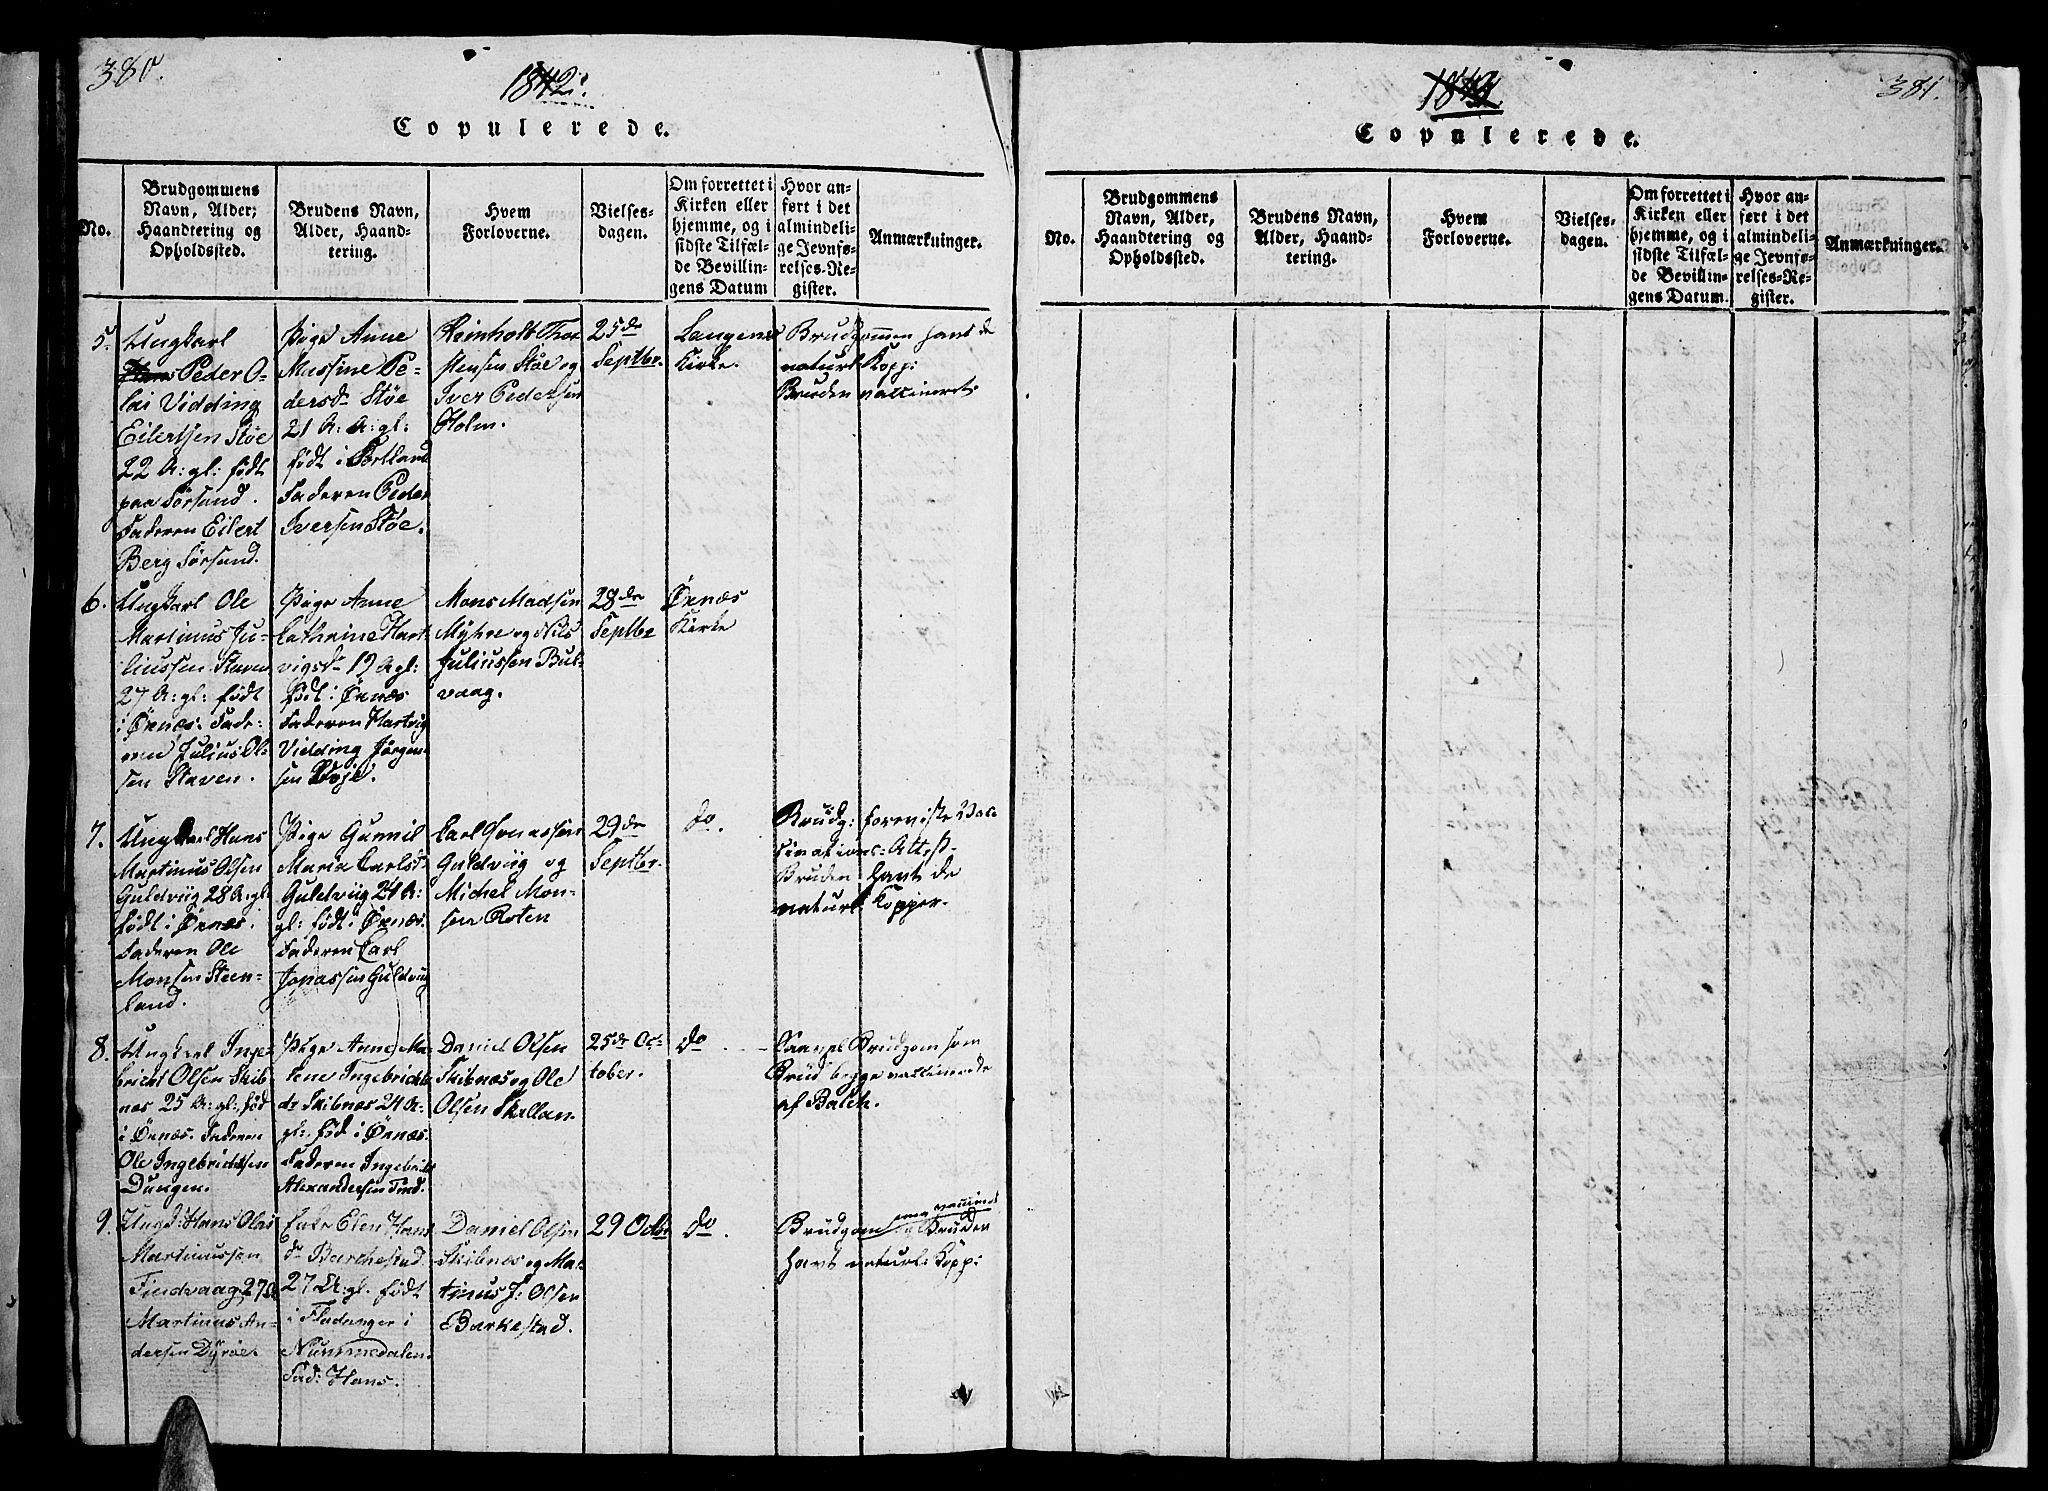 380.
1842.
Copulerede.
No.
Brudgommens
Navn, Alder,
Haandtering og
Opholdssted.
Brudens Navn,
Alder, Haand-
tering.
Hvem
Forloverne.
Vielses-
dagen.
Om forrettet i
Kirken eller
hjemme, og i
sidste Tilfæl-
de Bevillin-
gens Datum
Hvor an-
ført i det
almindeli-
ge Jevnfø-
relses-Re-
gister.
Anmærkninger.
5.
Ungkarl
Peder O-
lai Vidding
Eilertsen Støe
22 A: gl: født
paa Sørsand.
Faderen Eilert
Berg Sørsand.
Pige Anne
Messine Pe-
dersdr Støe
21 A: gl:
født i
Faderen Peder
Iversen Støe.
Reinholt Thor
stensen Støe og
Iver Pedersen
Holm.
25de
Septbr.
Langenes
Kirke.
Brudgommen havt de
naturl Kopp:
Bruden vaccineret
6.
Ungkarl Ole
Martinus Ju-
liussen Staven
27 A: gl: født
i Øxnæs. Fade-
ren Julius Ol-
sen Staven.
Pige Anne
Cathrine Hart
vigsdr 19 A gl:
født i Øxnæs
Faderen Hartvig
Vidding Jørgen-
sen
Mons Madsen
Myhre og Nils
Juliussen Bul-
vaag.
28de
Septbr
Øxnæs
Kirke
7.
Ungkarl Hans
Martinus Olsen
Guldviig 28 A: gl.
født i Øxnæs.
Faderen Ole
Monsen Steen-
land.
Pige Gunnil
Maria Carlsdr
Guldviig 24 A:
gl: født i Øxnæs.
Faderen Carl
Jonassen Guldviig
Carl Jonassen
Guldviig og
Michel Mon-
sen Roten
29de
Septbr.
do.
Brudg: foreviste Vac-
cinations-Attest
Bruden havt de
naturl: Kopper.
8.
Ungkarl Inge-
bricht Olsen Skib-
nes 25 A: gl: fød
i Øxnæs. Faderen
Ole Ingebrichtsen
Dungen.
Pige Anne Ma-
lene Ingebrichts
dr Skibnæs 24 A:
gl: fød i Øxnæs.
Faderen Ingebricht
Alexandersen Find.
Daniel Olsen
Skibnæs og Ole
Olsen Skallan.
25de Oc-
tober.
do
Saavel Brudgom som
Brud begge vaccinerede
af Balch.
9.
Ungk: Hans Olai
Martinussen
Findvaag 27 A:
Martinus An-
dersen Dyrøe.
Enke Elen Hans
dr Barchestad
27 A: gl. født
i Fladanger i
Nummedalen.
Fad: Hans.
Daniel Olsen
Skibnes og Mar
tinus J: Olsen
Barkestad.
29 Octbr
do.
Brudgom og Bruden
havt naturl: Kopp:
381.
Copulerede.
No.
Brudgommens
Navn, Alder,
Haandtering og
Opholdssted.
Brudens Navn,
Alder, Haand-
tering.
Hvem
Forloverne.
Vielses-
dagen.
Om forrettet i
Kirken eller
hjemme, og i
sidste Tilfæl-
de Bevillin-
gens Datum.
Hvor an-
ført i det
almindeli-
ge Jevnfø-
relses-Re-
gister.
Anmærkninger.